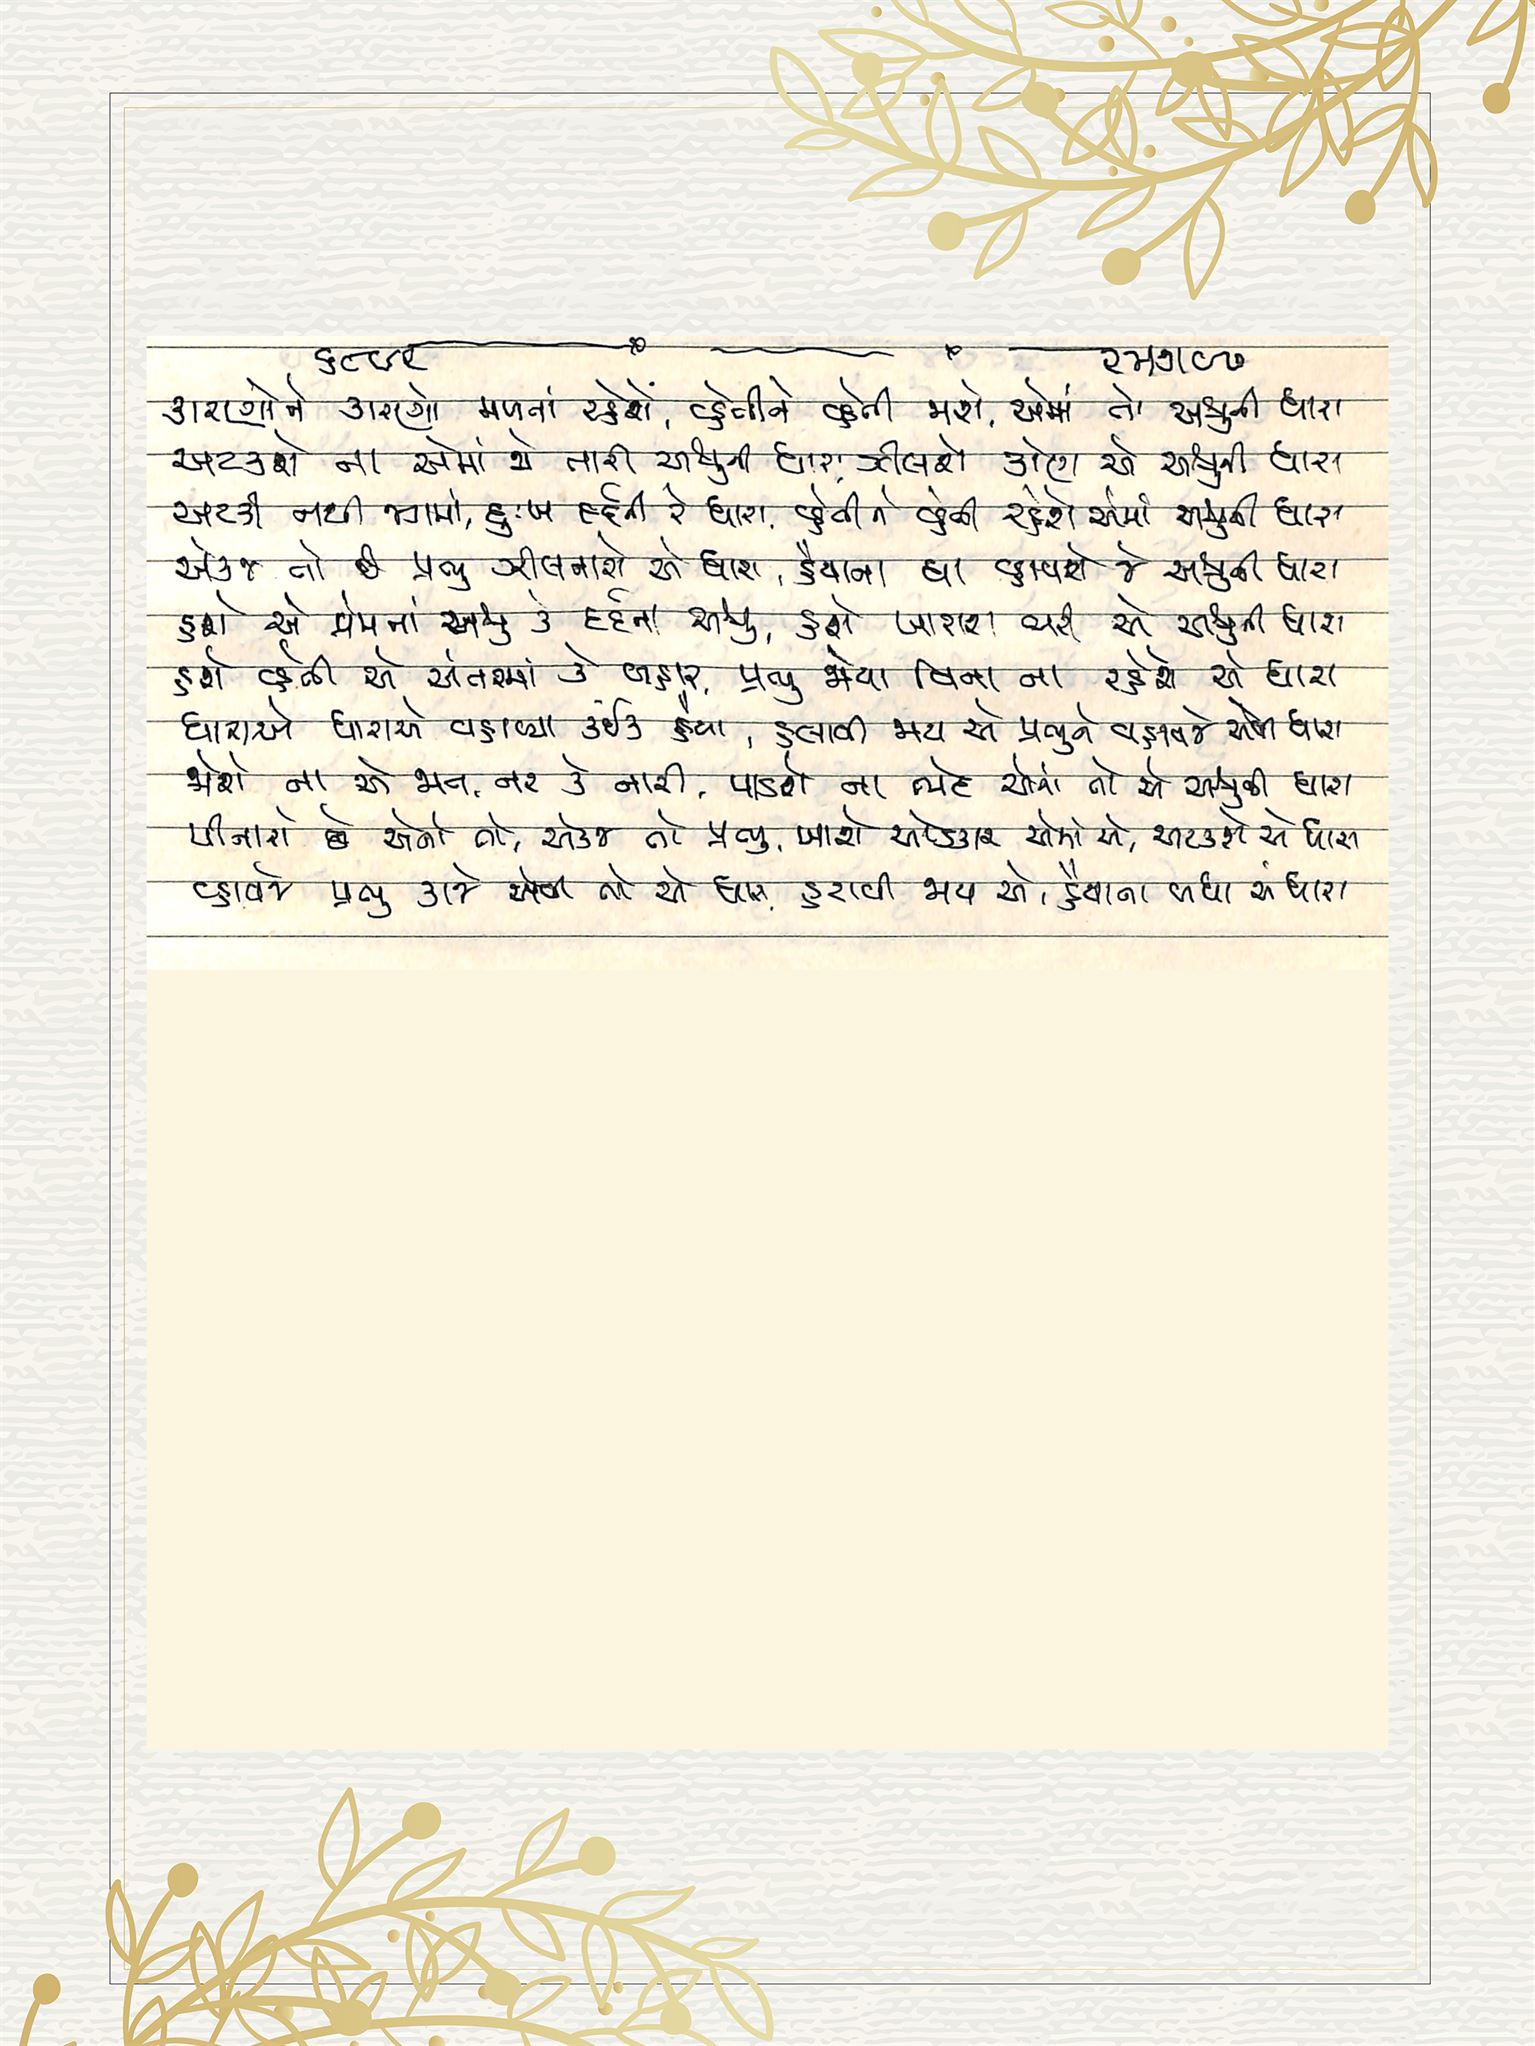 કારણોને કારણો મળતાં રહેશે, વ્હેતીને વ્હેતી જાશે, એમાં તો અશ્રુની ધારા
અટકશે ના એમાં જે તારી અશ્રુની ધારા, ઝીલશે કોણ એ અશ્રુની ધારા
અટકી નથી જગમાં, દુઃખ દર્દની રે ધારા, વ્હેતી ને વ્હેતી રહેશે એમાં અશ્રુની ધારા
એકજ તો છે પ્રભુ ઝીલનારો એ ધારા, હૈયાના ઘા વ્હાવશે જે અશ્રુની ધારા
હશે એ પ્રેમનાં અશ્રુ કે દર્દના અશ્રુ, હશે ખારાશ ભરી એ અશ્રુની ધારા
હશે વ્હેતી એ અંતરમાં કે બહાર, પ્રભુ જોયા વિના ના રહેશે એ ધારા
ધારાએ ધારાએ વહાવ્યા કંઈક હૈયા, હલાવી જાય એ પ્રભુને વહાવજે એવી ધારા
જોશે ના એ જાત, નર કે નારી, પાડશે ના ભેદ એમાં તો એ અશ્રુની ધારા
પીનારો છે એનો તો, એકજ તો પ્રભુ, ખાશે ઓડકાર એનો એ, અટકશે એ ધારા
વ્હાવજે પ્રભુ કાજે એવી તો એ ધારા, હરાવી જાય એ, હૈયાના બધા અંધારા